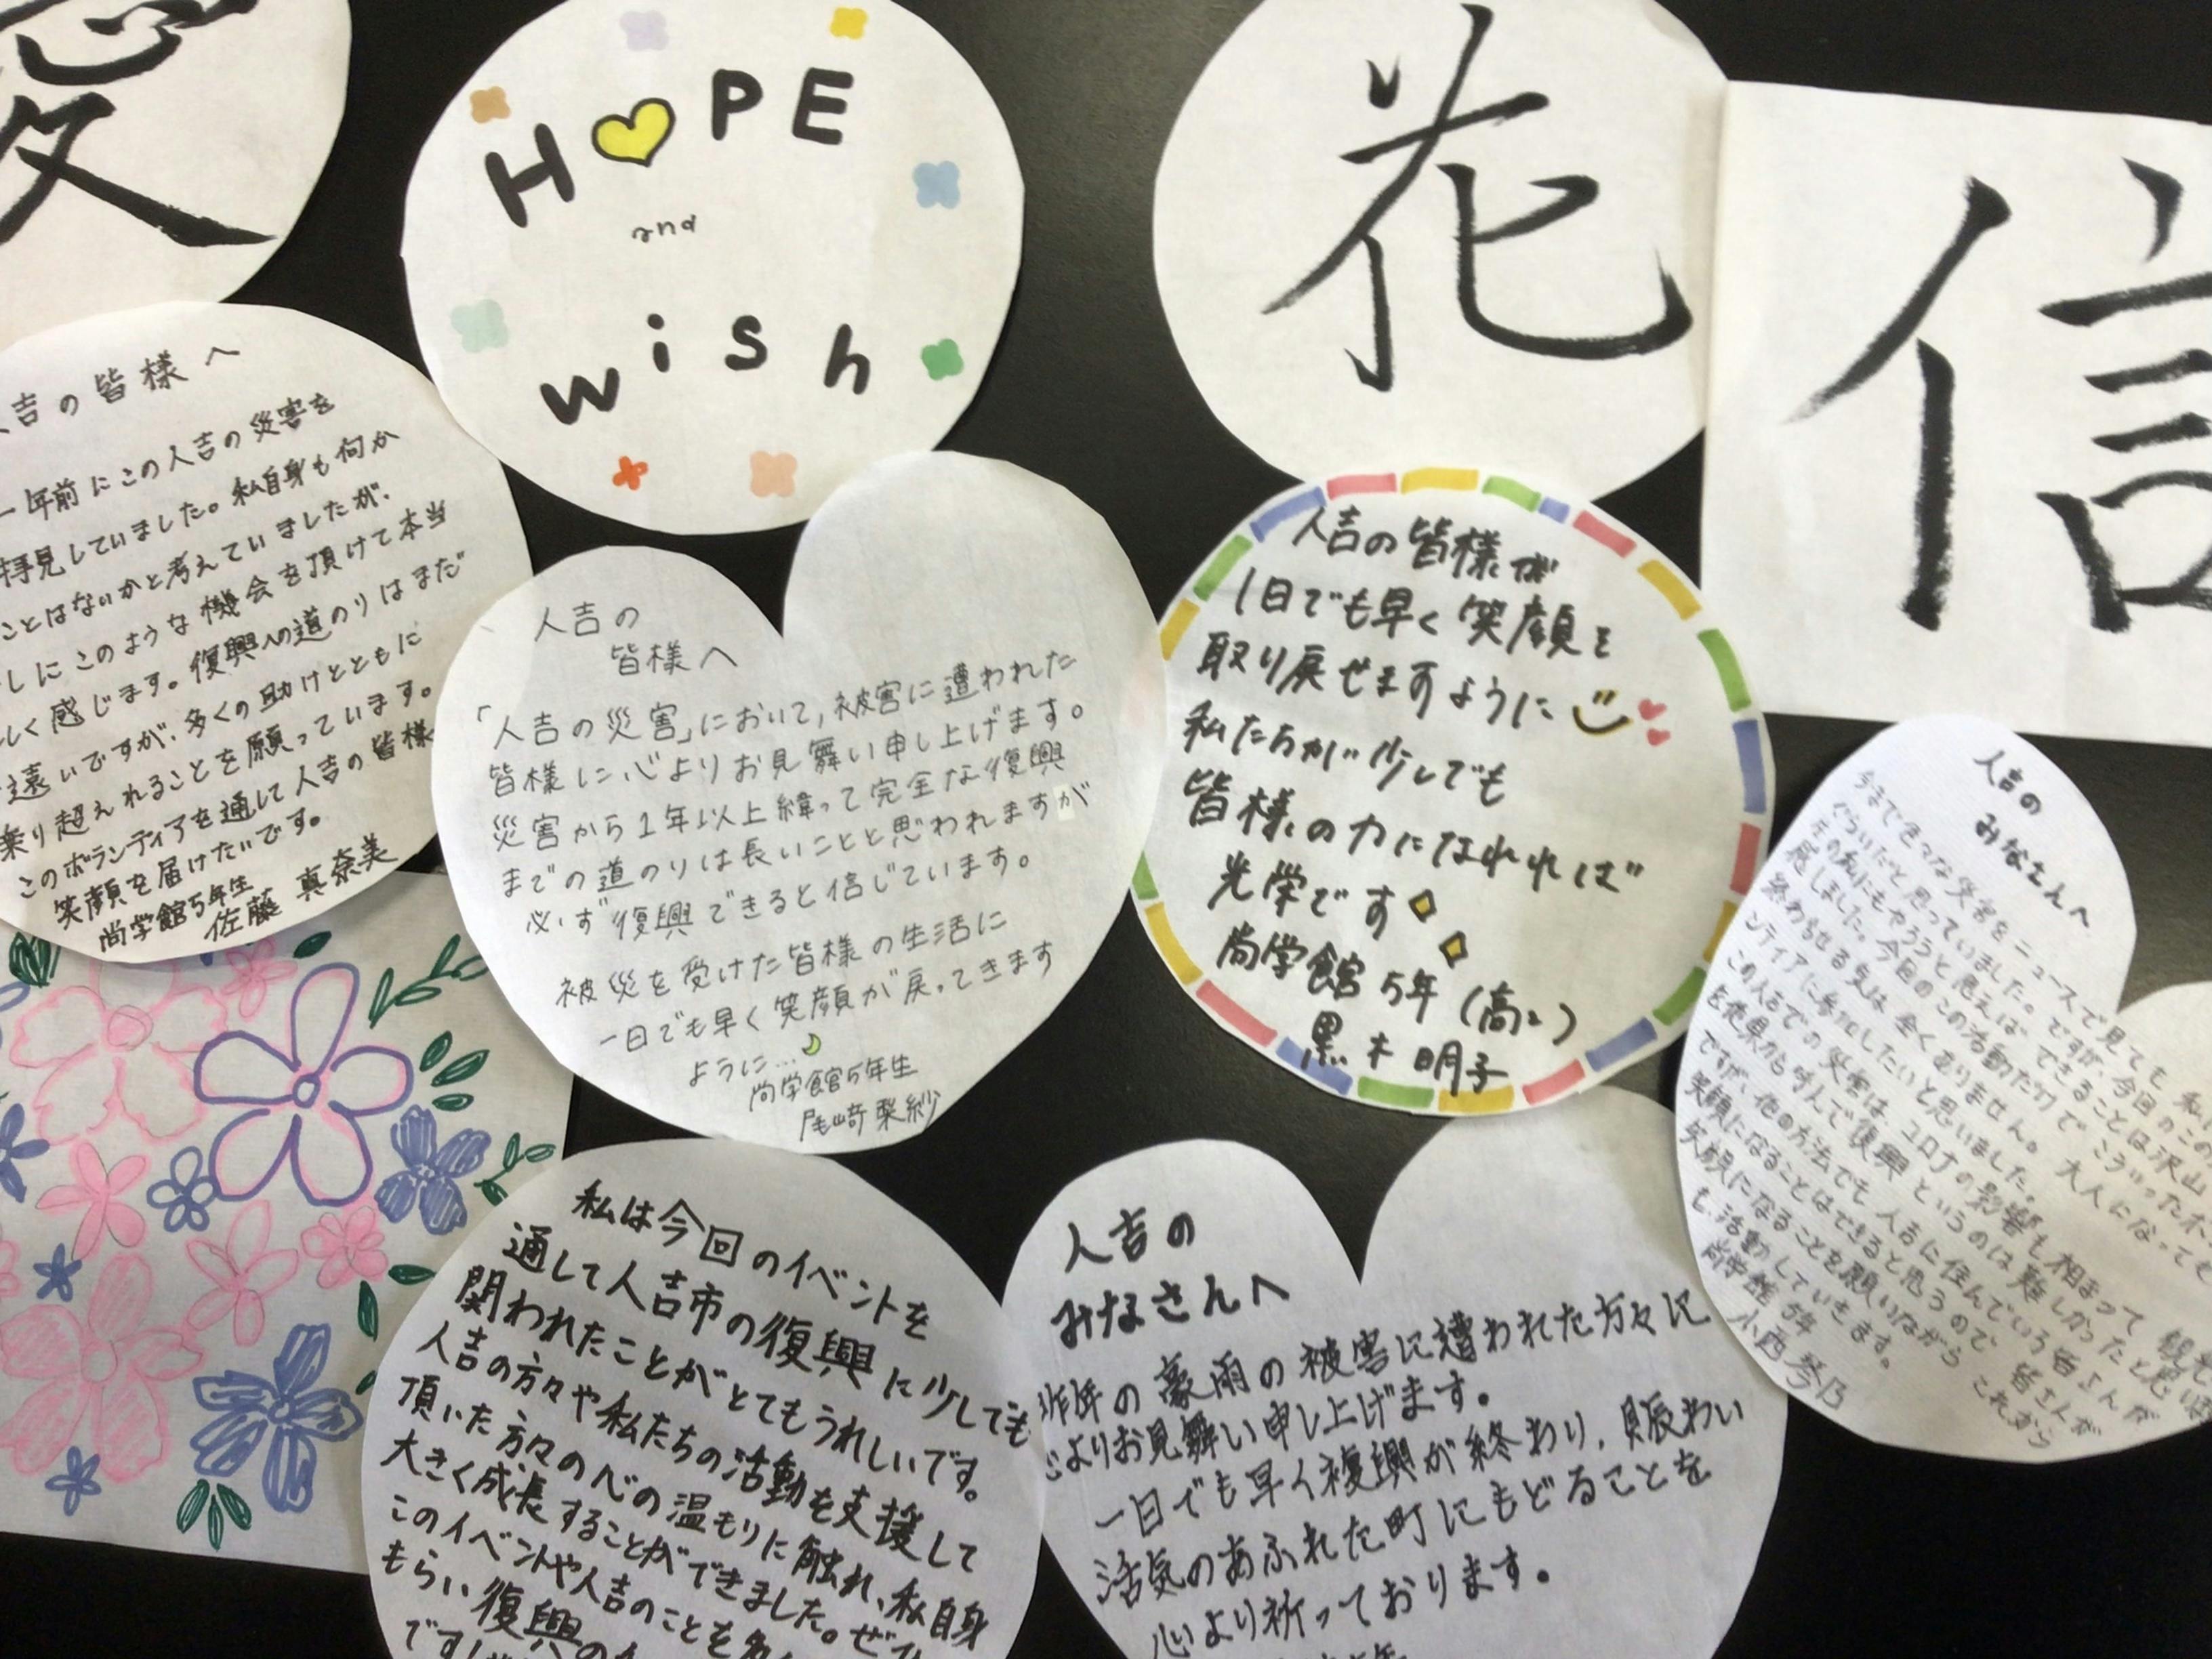 愛
HOPE
and
wish
花
信
人吉の皆様へ
一年前にこの人吉の災害を
拝見していました。私自身も何か
ことはないかと考えていましたが、
しにこのような機会を頂けて本当
しく感じます。復興への道のりはまだ
遠いですが、多くの助けとともに
乗り超えれることを願っています。
このボランティアを通して人吉の皆様
笑顔を届けたいです。
尚学館5年生
佐藤 真奈美
人吉の
皆様へ
「人吉の災害」において,被害に遭われた
皆様に心よりお見舞い申し上げます。
災害から1年以上経って完全な復興
までの道のりは長いことと思われますが
必ず復興できると信じています。
被災を受けた皆様の生活に
一日でも早く笑顔が戻ってきます
ように…
尚学館5年生
尾崎 梨紗
人吉の皆様が
1日でも早く笑顔を
取り戻せますように
私たちが少しでも
皆様の力になれれば
光栄です
尚学館5年(高2)
黒木明子
人吉の
みなさんへ
今まで色々な災害をニュースで見ても 私
ぐらいだと思っていました。ですが、今回のこの
その私にもやろうと思えば できることは沢山
感しました。今回のこの活動だけで こういったボ
終わらせる気は全くありません。大人になっても
ンティアに参加したいと思いました。
この人吉での災害は、コロナの影響も相まって 観光
を他県から呼んで復興というのは難しかったと思い
ですが、他の方法でも人吉に住んでいる皆さんが
笑顔になることはできると思うので 皆さんが
笑顔になることを願いながら これから
も活動していきます。
尚学館5年
小西 琴乃
私は今回のイベントを
通して人吉市の復興に少しでも
関われたことがとてもうれしいです。
人吉の方々や私たちの活動を支援して
頂いた方々の心の温もりに触れ、私自身
大きく成長することができました。ぜひ
このイベントや人吉のことを
もらい復興の
人吉の
みなさんへ
昨年の豪雨の被害に遭われた方々に
心よりお見舞い申し上げます。
一日でも早く復興が終わり、賑わい
活気のあふれた町にもどることを
心より祈っております。